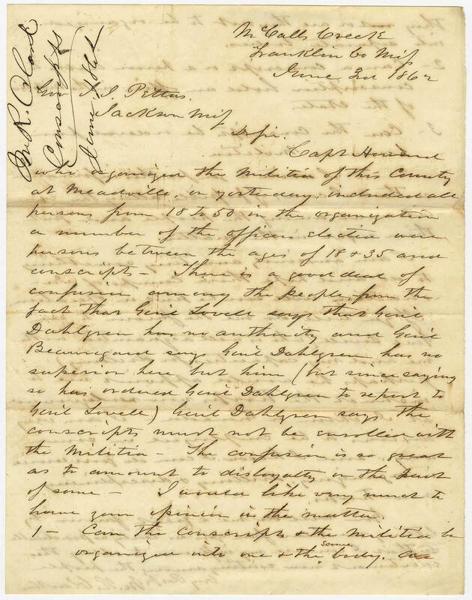 M. R. Clark
Conscripts
June 2d 1862
McCalls Creek
Franklin Co Miss
June 2nd 1862
Gov J. J. Pettus
Jackson Miss
Sir
Capt Howard
who organized the Militia of this County
at Meadville, on yesterday, included all
persons from 18 to 50 in the organization
a number of the officers elected were
persons between the ages of 18 & 35 and
conscripts — There is a good deal of
confusion among the people from the
fact that Genl Lovell says that Genl
Dahlgren has no authority and Genl
Beauregard say Genl Dahlgren has no
superior here but him (but since saying
so has ordered Genl Dahlgren to report to
Genl Lovell) Genl Dahlgren says the
conscripts must not be enrolled with
the Militia — The confusion is so great
as to amount to disloyalty on the part
of some — I would like very much to
have your opinion in the matter.
1 — Can the conscripts & the Militia be
organized into one & the same body. as